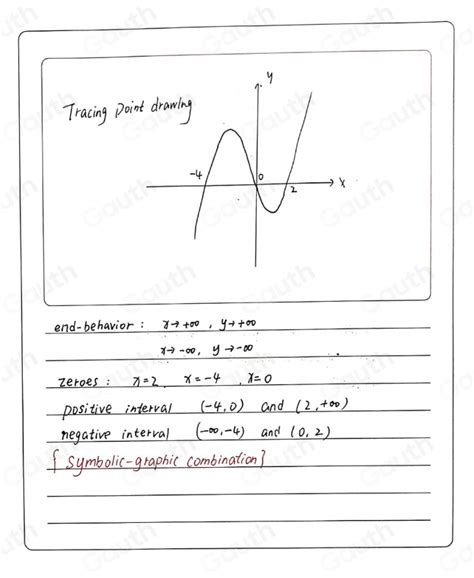 y
Tracing point drawing
-4 0 2 x
end-behavior : x→+∞ , y→+∞
x→-∞, y→-∞
zeroes : x=2, x=-4, x=0
positive interval (-4,0) and (2,+∞)
negative interval (-∞,-4) and (0,2)
[Symbolic-graphic combination]